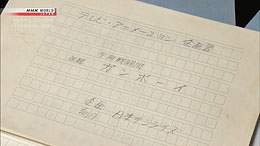 NHK WORLD
JAPAN
テレビ・アニメーション 企画書
宇宙戦闘団
仮題 ガンボーイ
企画
制作 日本サンライズ